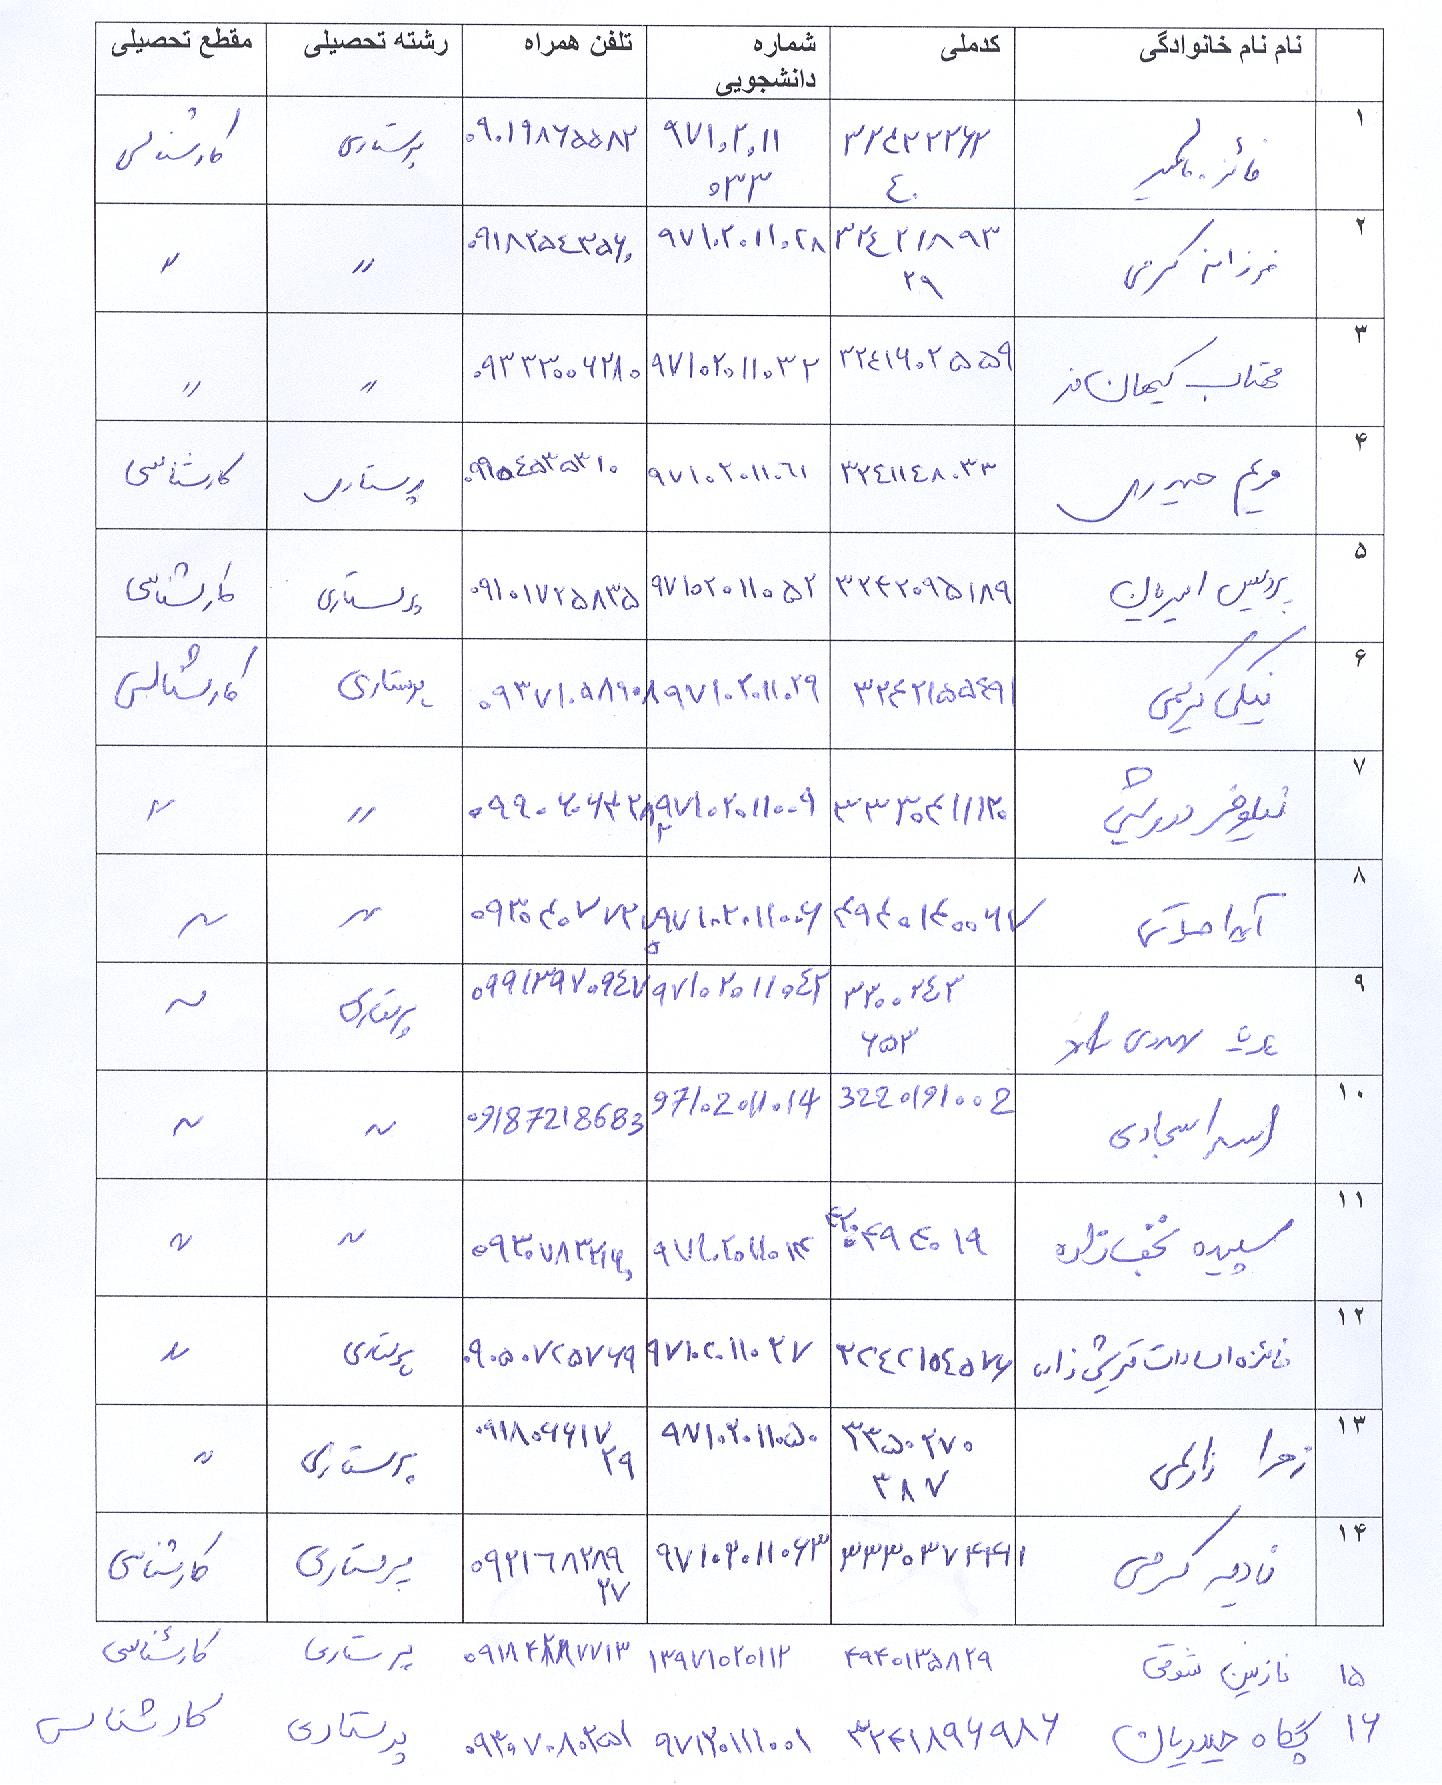 نام نام خانوادگی کدملی شماره دانشجویی تلفن همراه رشته تحصیلی مقطع تحصیلی
۱ فائزه ۹۷۱۰۲۰۱۱۰۳۳ ۰۹۰۱۹۸۶۵۵۸۲ پرستاری کارشناسی
۲ فرزانه کرمی ۳۲۴۲۱۸۹۳۲۹ ۹۷۱۰۲۰۱۱۰۲۸ ۰۹۱۸۲۵۴۳۵۶۰ " "
۳ مهتاب کیهان فر ۳۲۴۱۶۰۲۵۵۹ ۹۷۱۰۲۰۱۱۰۳۲ ۰۹۳۳۳۰۰۶۲۸۰ " "
۴ مریم حیدری ۳۲۴۱۱۴۸۰۳۳ ۹۷۱۰۲۰۱۱۰۶۱ پرستاری کارشناسی
۵ پردیس امیریان ۳۲۴۲۰۹۵۱۸۹ ۹۷۱۰۲۰۱۱۰۵۲ ۰۹۱۰۱۷۲۵۸۳۵ پرستاری کارشناسی
۶ نیکی کریمی ۳۲۴۲۱۵۵۴۹۱ ۹۷۱۰۲۰۱۱۰۲۹ ۰۹۳۷۱۰۵۸۹۰۸ پرستاری کارشناسی
۷ نیلوفر درویشی ۳۳۳۰۴۱۱۱۲۰ ۹۷۱۰۲۰۱۱۰۰۹ " "
۸ ۴۹۴۰۱۴۰۰۶۷ ۹۷۱۰۲۰۱۱۰۰۶ ۰۹۳۰۴۰۷۷۲۷۵ ~ ~
۹ ۳۲۰۰۲۴۳۶۵۳ ۹۷۱۰۲۰۱۱۰۴۲ ۰۹۹۱۳۹۷۰۹۴۷ پرستاری ~
۱۰ اسرا سجادی 3220191002 97102011014 09187218683 ~ ~
۱۱ سپیده نجف زاده ۹۷۱۰۲۰۱۱۰۱۴ ~ ~
۱۲ فائزه السادات قریشی زاده ۳۲۴۲۱۵۴۵۷۶ ۹۷۱۰۲۰۱۱۰۲۷ ۰۹۰۵۰۷۲۵۷۶۹ پرستاری "
۱۳ زهرا زارعی ۳۳۵۰۲۷۰۳۸۷ ۹۷۱۰۲۰۱۱۰۵۰ ۰۹۱۸۰۶۶۱۷۲۹ پرستاری "
۱۴ نادیه کرمی ۳۳۳۰۳۷۴۴۴۱ ۹۷۱۰۲۰۱۱۰۶۳ ۰۹۲۱۶۸۲۸۹۲۷ پرستاری کارشناسی
۱۵ نازنین شوقی ۴۹۴۰۱۳۵۸۲۹ ۱۳۹۷۱۰۲۰۱۱۲ پرستاری کارشناسی
۱۶ پگاه حیدریان ۳۲۴۱۸۹۶۹۸۶ ۹۷۱۲۰۱۱۱۰۰۱ ۰۹۳۰۷۰۸۰۲۵۱ پرستاری کارشناسی